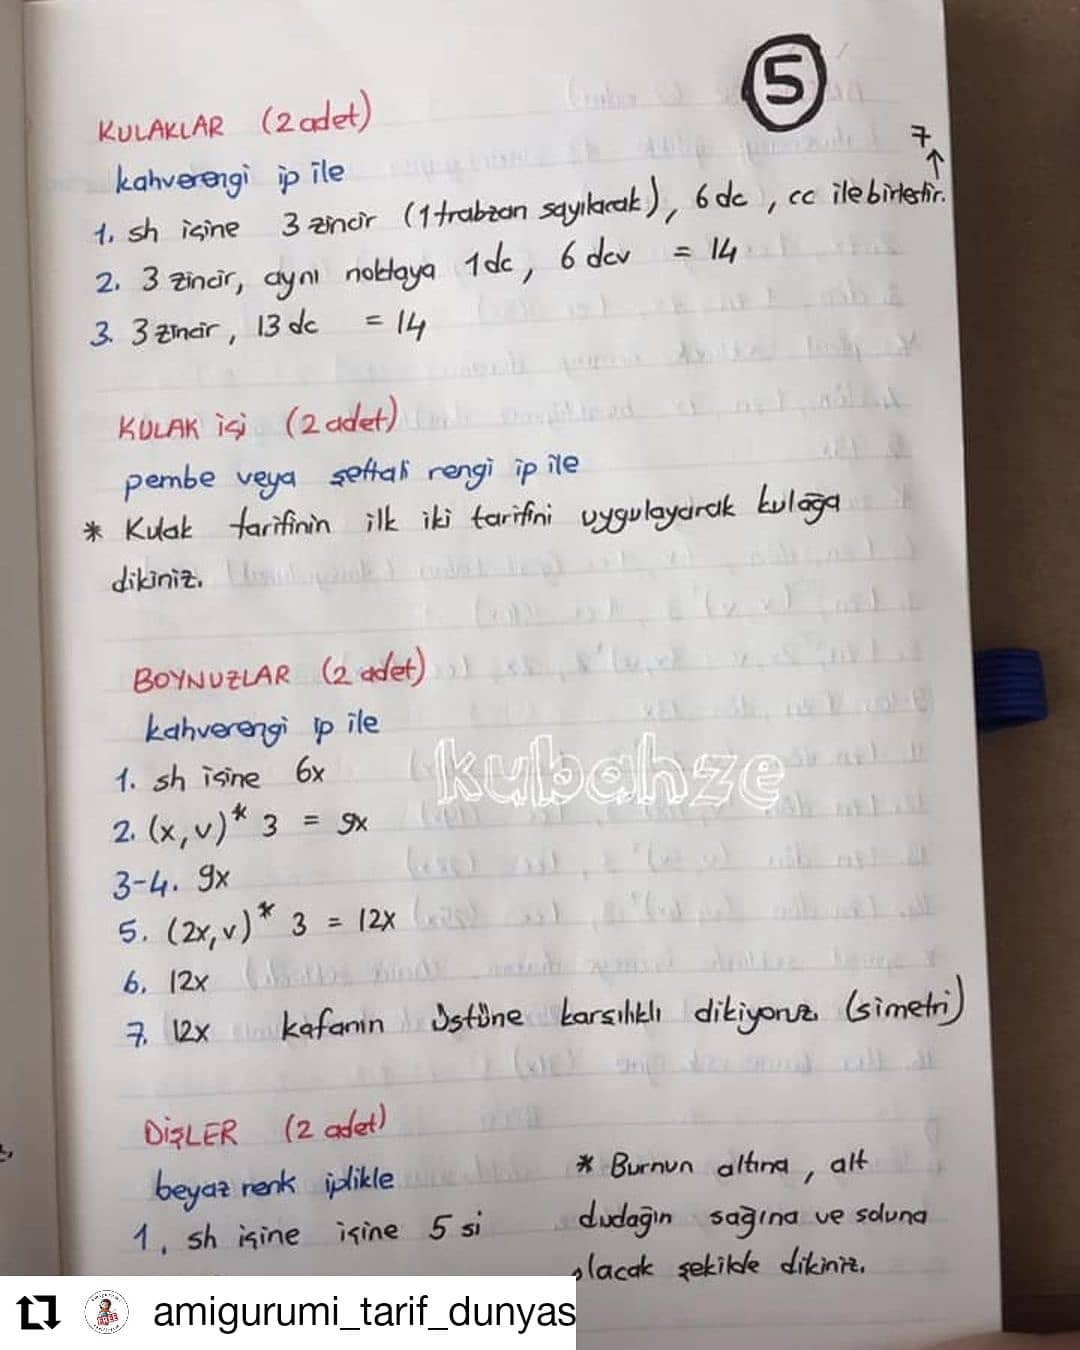 5
KULAKLAR (2 adet)
kahverengi ip ile
7
1. sh içine 3 zincir (1 trabzan sayılacak), 6 dc, cc ile birleştir.
2. 3 zincir, aynı noktaya 1dc, 6 dcv = 14
3. 3 zincir, 13 dc = 14
KULAK içi (2 adet)
pembe veya şeftali rengi ip ile
* Kulak tarifinin ilk iki tarifini uygulayarak kulağa
dikiniz.
BOYNUZLAR (2 adet)
kahverengi ip ile
1. sh içine 6x
2. (x,v)* 3 = 9x
3-4. 9x
5. (2x,v)* 3 = 12x
6. 12x
7. 12x kafanın üstüne karşılıklı dikiyoruz. (simetri)
kubahze
DİŞLER (2 adet)
beyaz renk iplikle
1. sh içine içine 5 si
* Burnun altına, alt
dudağın sağına ve soluna
olacak şekilde dikiniz.
amigurumi_tarif_dunyas